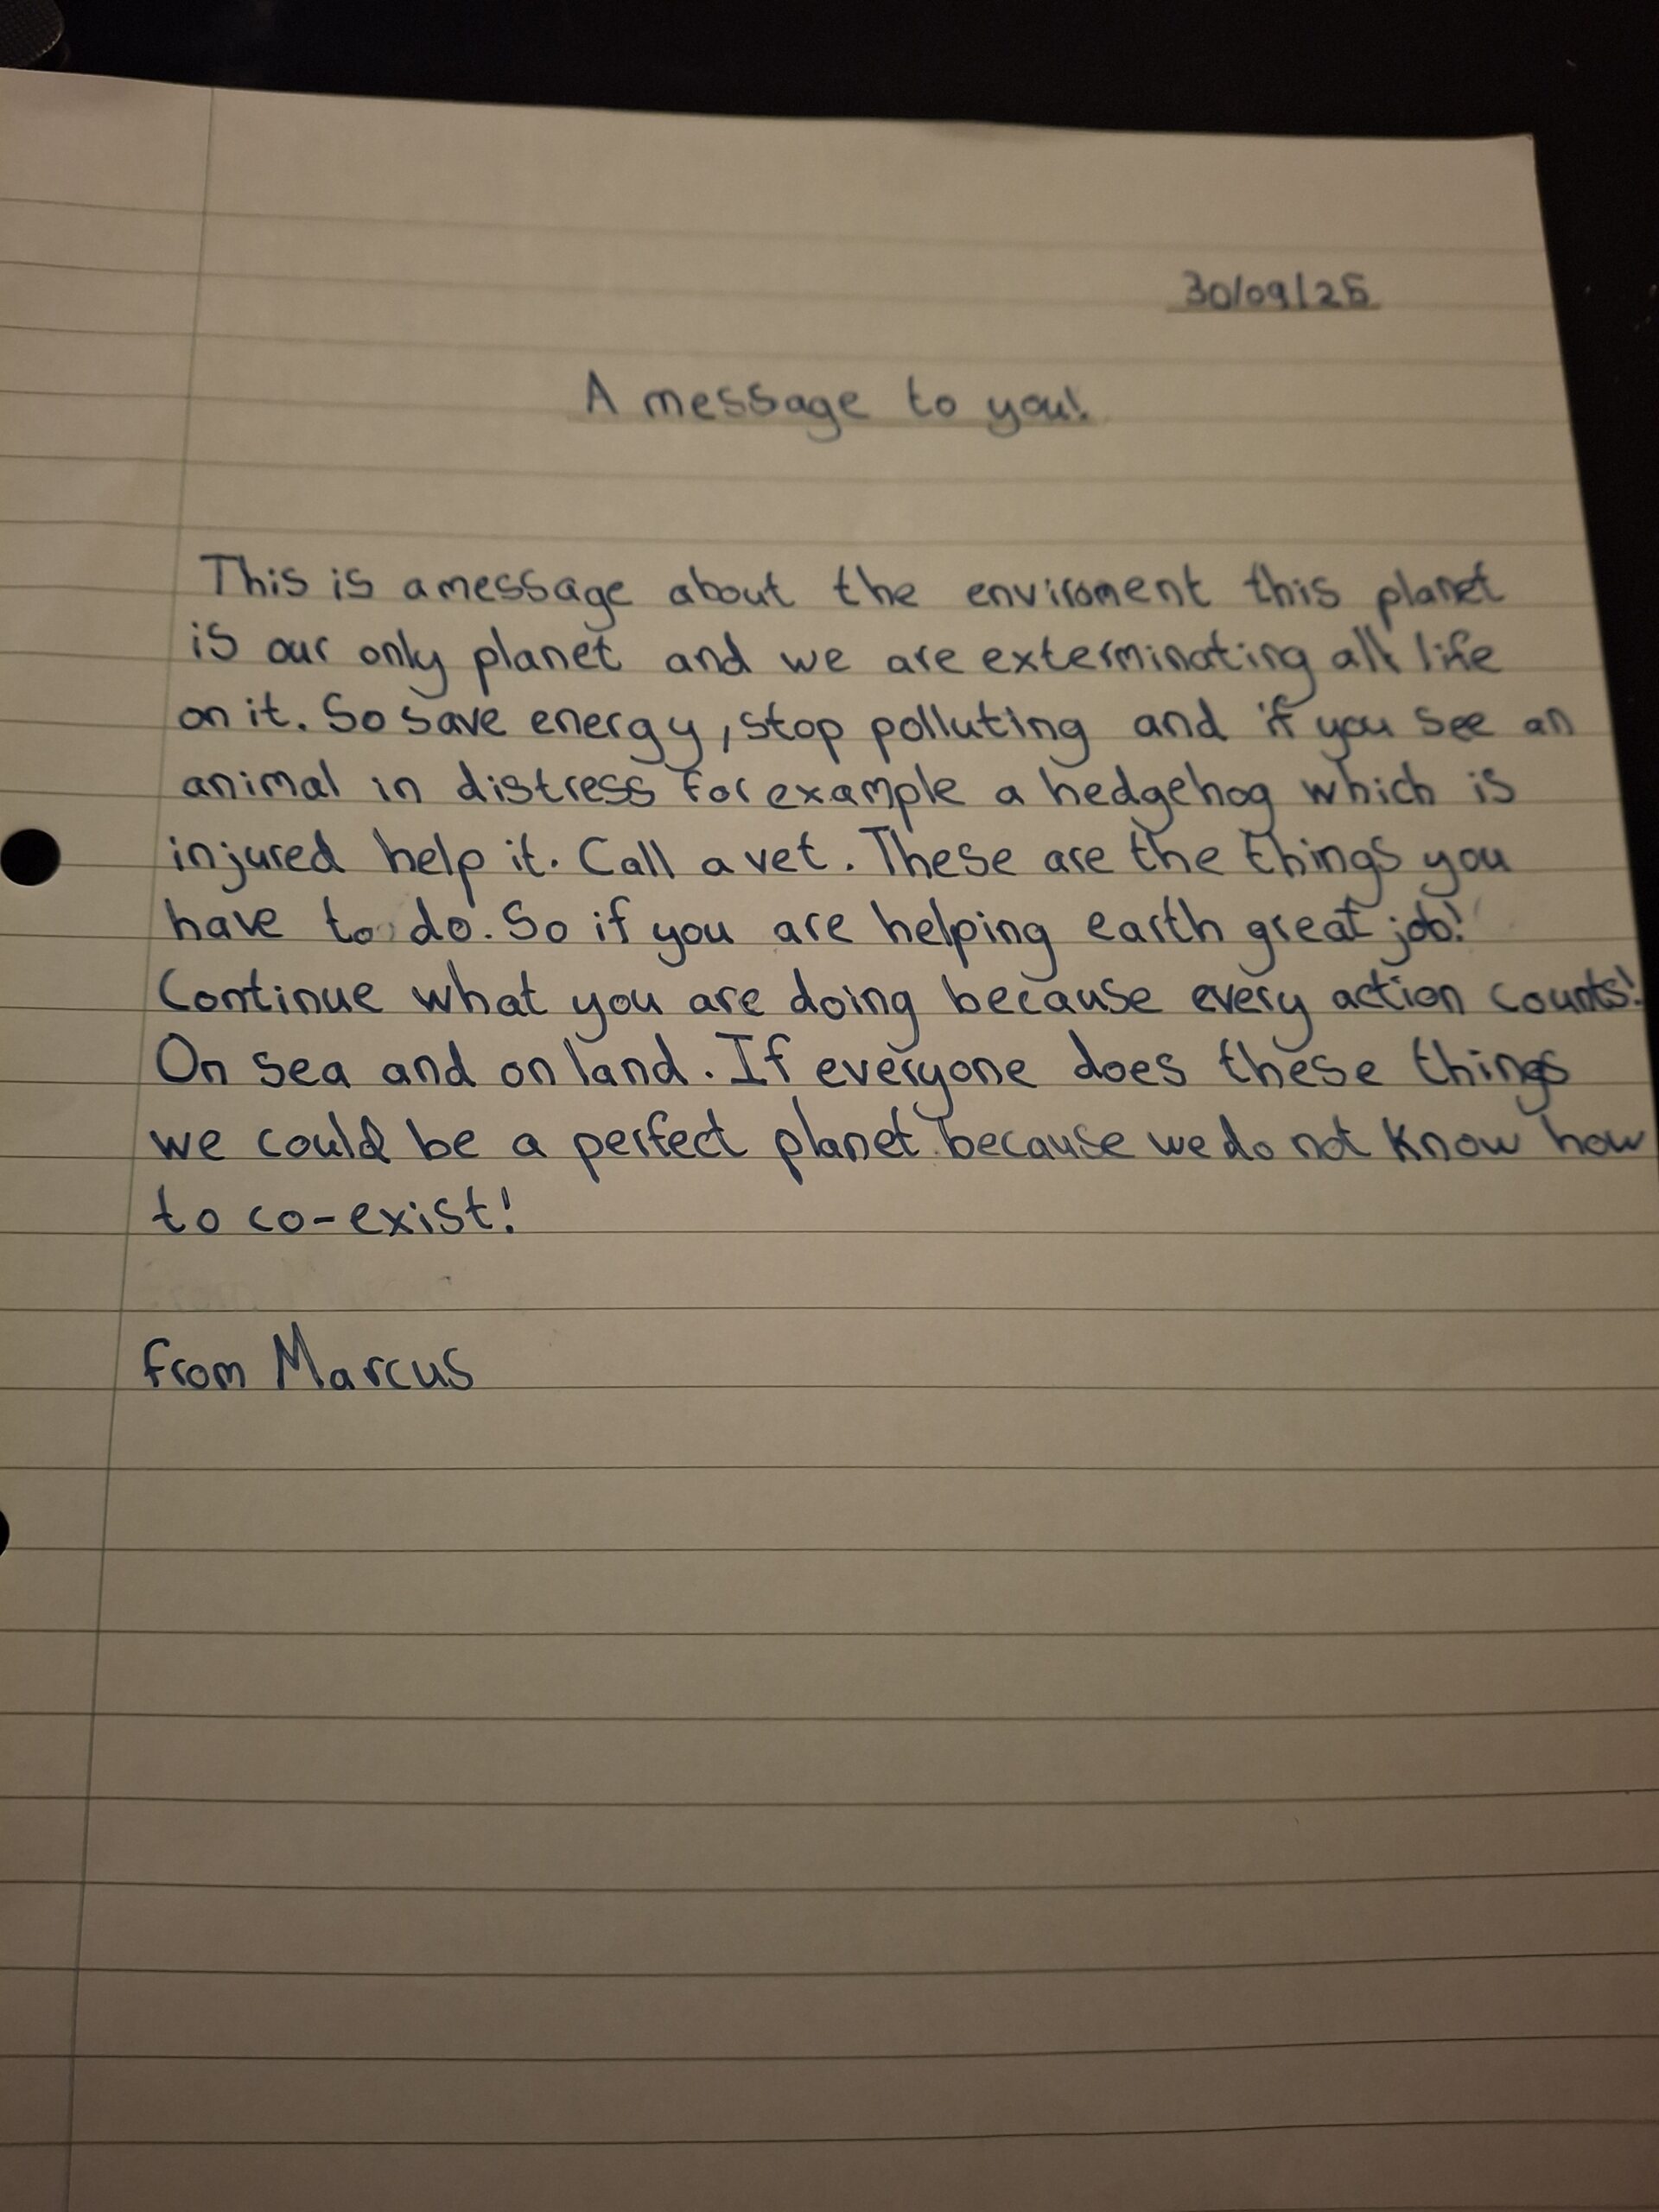 30/09/25
A message to you!
This is a message about the enviroment this planet
is our only planet and we are exterminating all life
on it. So save energy, stop polluting and if you see an
animal in distress for example a hedgehog which is
injured help it. Call a vet. These are the things you
have to do. So if you are helping earth great job!
Continue what you are doing because every action counts!
On sea and on land. If everyone does these things
we could be a perfect planet because we do not know how
to co-exist!
from Marcus